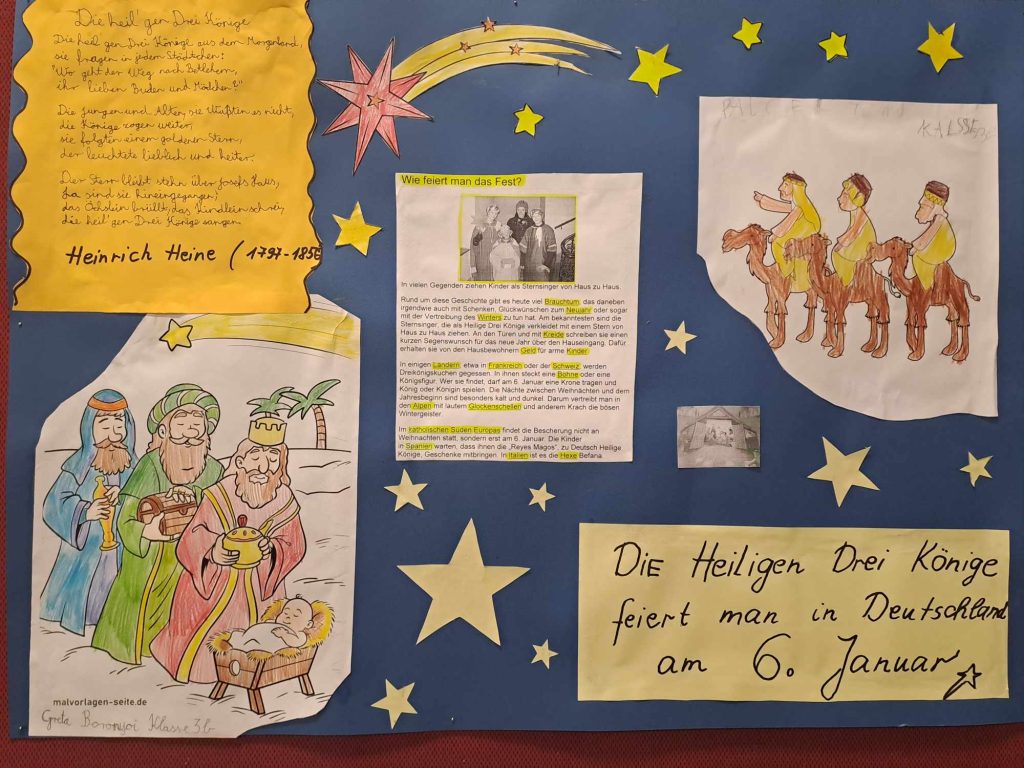 Die heil'gen Drei Könige
Die heil gen Drei Könige aus dem Morgenland,
sie fragen in jedem Städtchen:
"Wo geht der Weg nach Betlehem,
ihr lieben Buden und Mädchen?"
Die Jungen und Alten, sie wußten es nicht,
die Könige zogen weiter,
sie folgten einem goldenen Stern,
der leuchtete lieblich und heiter.
Der Stern bleibt stehn über Josefs Haus,
da sind sie hineingegangen,
das Öchslein brüllt, das Kindlein schrei,
die heil'gen Drei Könige sangen
Heinrich Heine (1797-1856
Wie feiert man das Fest?
In vielen Gegenden ziehen Kinder als Sternsinger von Haus zu Haus.
Rund um diese Geschichte gibt es heute viel Brauchtum, das daneben
irgendwie auch mit Schenken, Glückwünschen zum Neujahr oder sogar
mit der Vertreibung des Winters zu tun hat. Am bekanntesten sind die
Sternsinger, die als Heilige Drei Könige verkleidet mit einem Stern von
Haus zu Haus ziehen. An den Türen und mit Kreide schreiben sie einen
kurzen Segenswunsch für das neue Jahr über den Hauseingang. Dafür
erhalten sie von den Hausbewohnern Geld für arme Kinder.
In einigen Ländern, etwa in Frankreich oder der Schweiz, werden
Dreikönigskuchen gegessen. In ihnen steckt eine Bohne oder eine
Königsfigur. Wer sie findet, darf am 6. Januar eine Krone tragen und
König oder Königin spielen. Die Nächte zwischen Weihnachten und dem
Jahresbeginn sind besonders kalt und dunkel. Darum vertreibt man in
den Alpen mit lautem Glockenschellen und anderem Krach die bösen
Wintergeister.
Im katholischen Süden Europas findet die Bescherung nicht an
Weihnachten statt, sondern erst am 6. Januar. Die Kinder
in Spanien warten, dass ihnen die „Reyes Magos", zu Deutsch Heilige
Könige, Geschenke mitbringen. In Italien ist es die Hexe Befana.
Die Heiligen Drei Könige
feiert man in Deutschland
am 6. Januar
malvorlagen-seite.de
Greta Klasse 3b